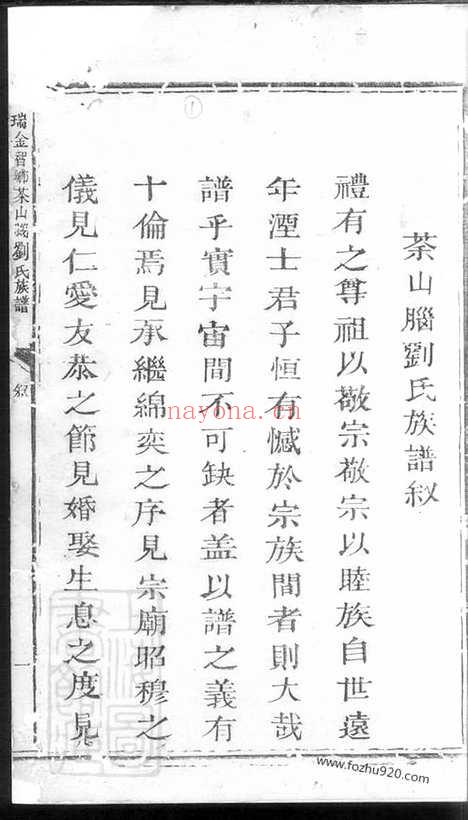 茶山腦劉氏族譜敘
禮有之尊祖以敬宗敬宗以睦族自世遠
年湮士君子恒有憾於宗族間者則大哉
譜乎實宇宙間不可缺者盖以譜之義有
十倫焉見承繼綿奕之序見宗廟昭穆之
儀見仁愛友恭之節見婚娶生息之度見
瑞金智鄉茶山腦劉氏族譜
敘
一
1
nayona.cn
www.fozhu920.com